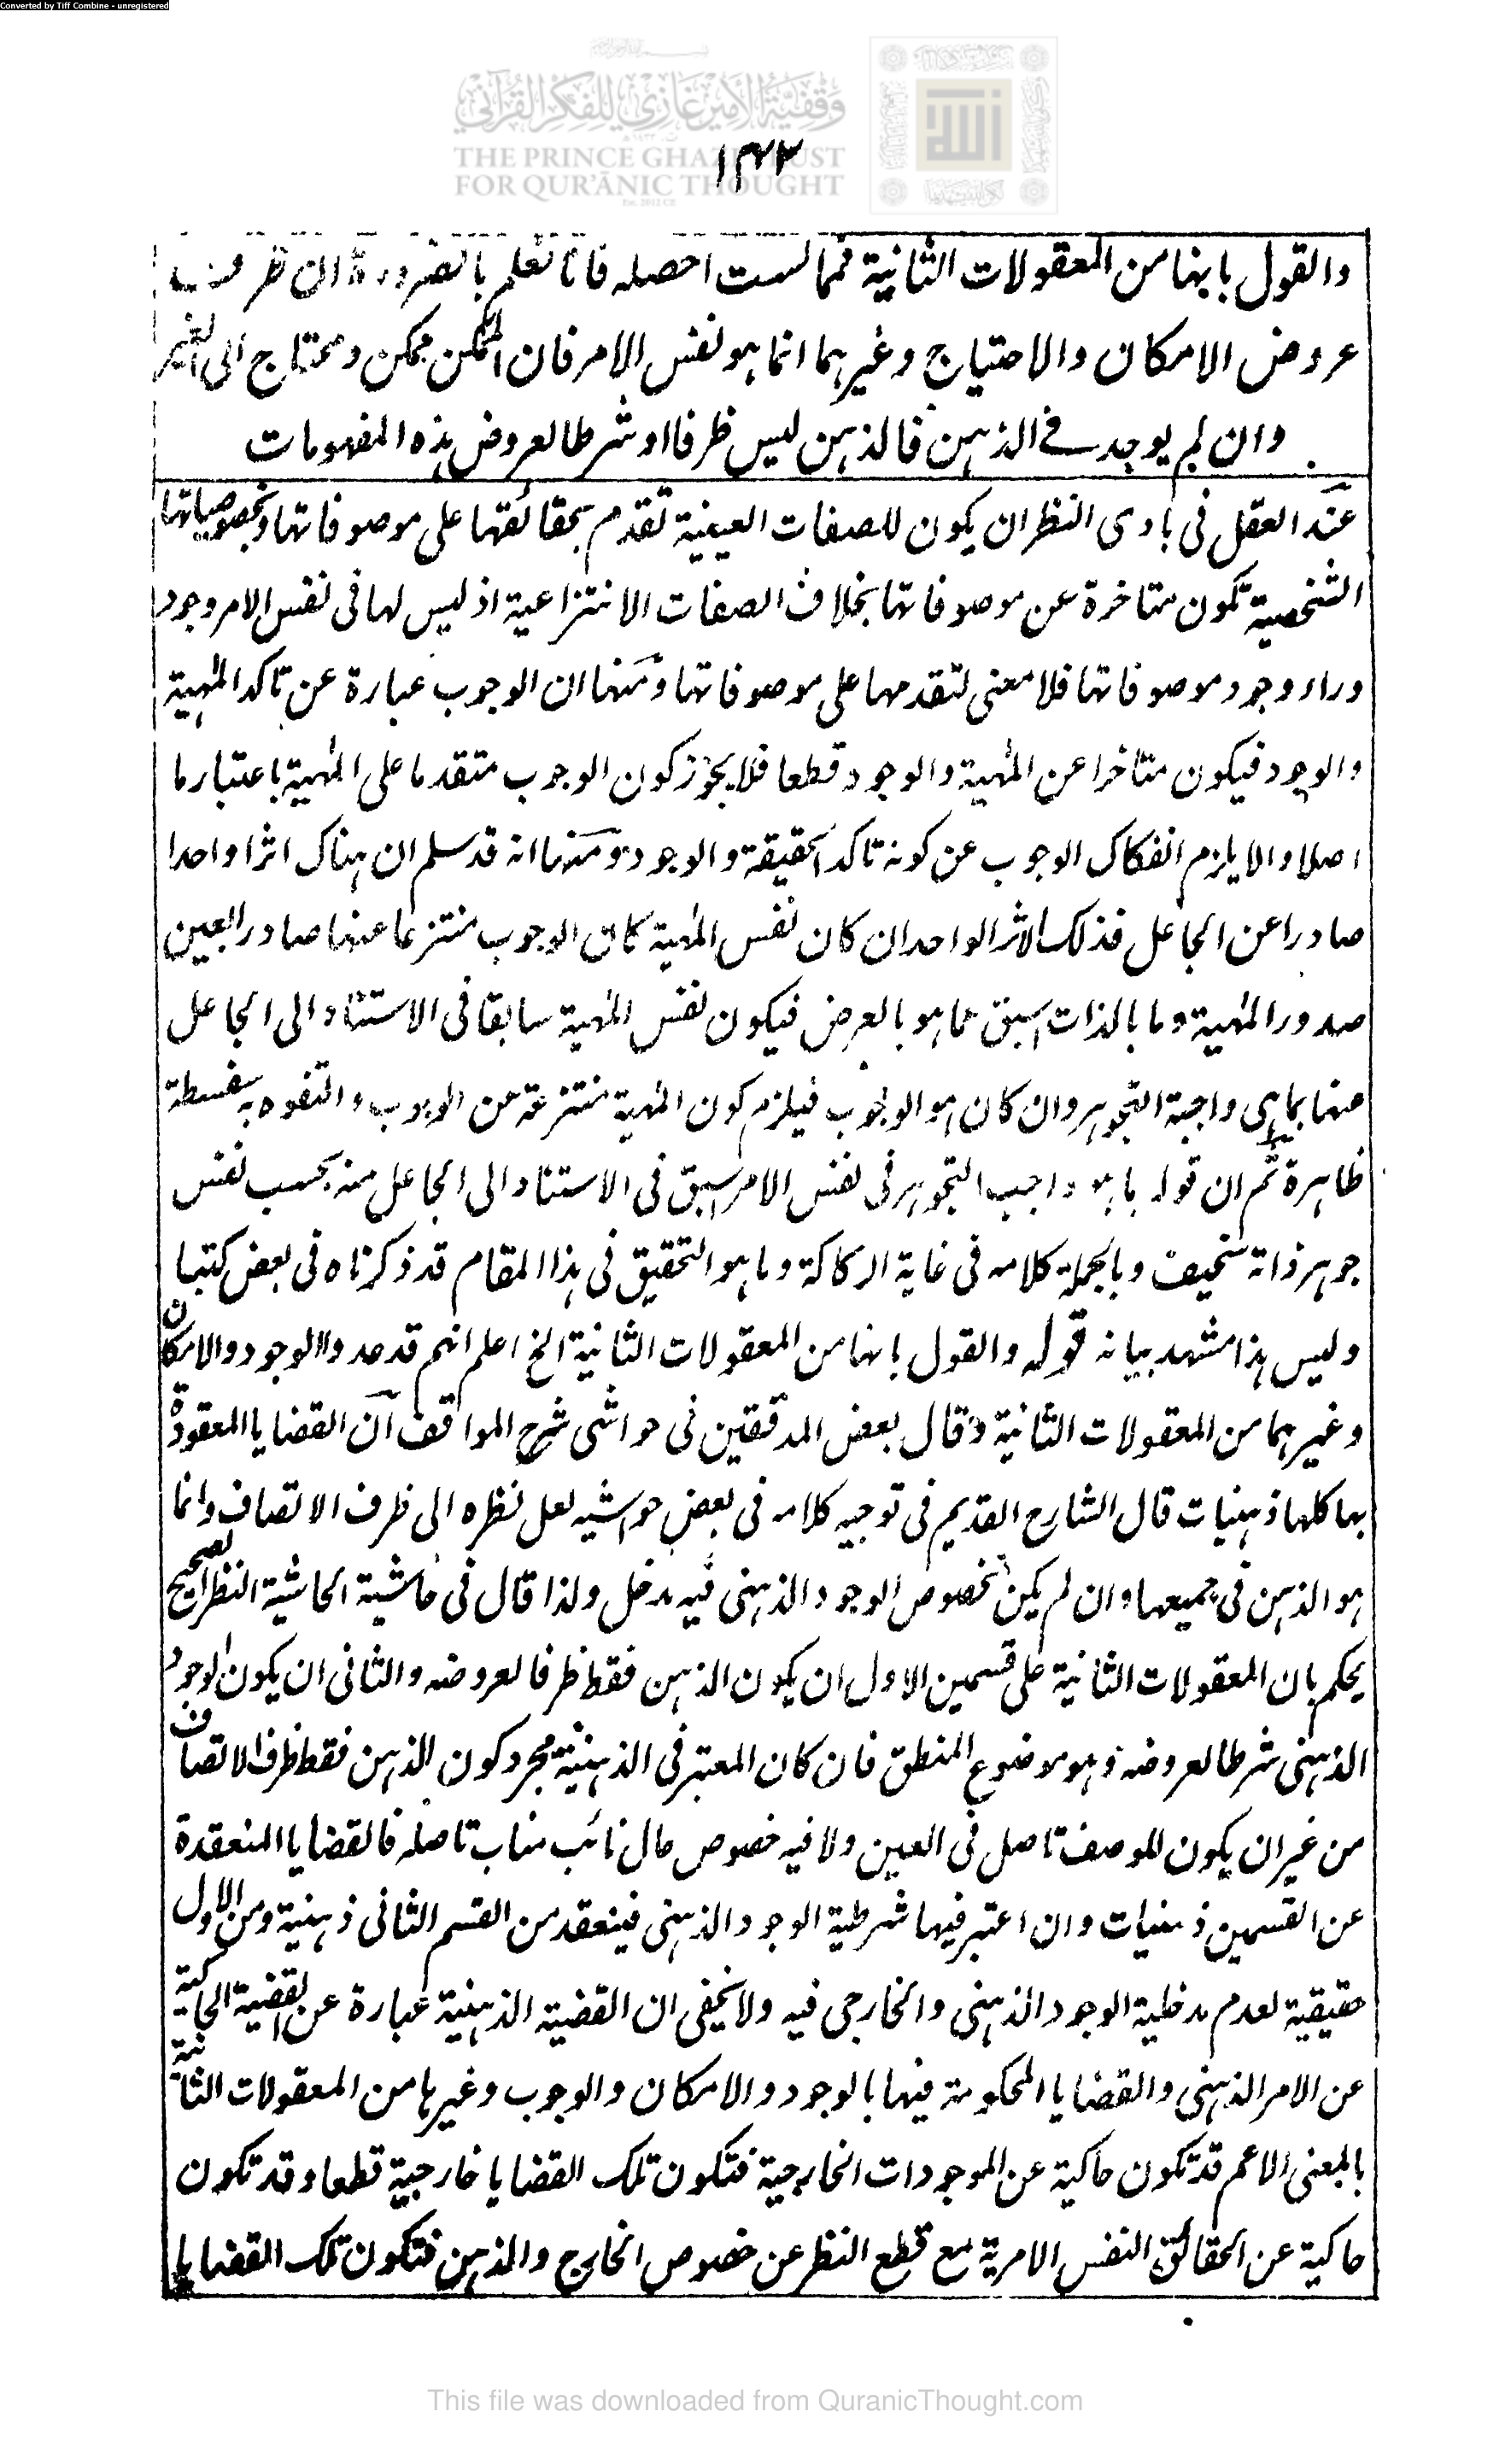 Converted by Tiff Combine - unregistered
وقفية الأمير غازي للفكر القرآني
THE PRINCE GHAZI TRUST
FOR QUR'ĀNIC THOUGHT
١٣٢
والقول بانها من المعقولات الثانية فمما لست احصله فانا نعلم بالضرورة ان ظرف
عروض الامكان والاحتياج وغيرهما انما هو نفس الامر فان الممكن ممكن ومحتاج الى الغير
وان لم يوجد في الذهن فالذهن ليس ظرفا او شرطا لعروض هذه المفهومات
عند العقل فى بادى النظر ان يكون للصفات العينية تقدم بحقائقها على موصوفاتها وبخصوصياتها
الشخصية تكون متاخرة عن موصوفاتها بخلاف الصفات الانتزاعية اذ ليس لها فى نفس الامر وجود
وراء وجود موصوفاتها فلا معنى لتقدمها على موصوفاتها ومنها ان الوجوب عبارة عن تاكد المهية
والوجود فيكون متاخرا عن المهية والوجود قطعا فلا يجوز كون الوجوب متقدما على المهية باعتبار ما
اصلا والا يلزم انفكاك الوجوب عن كونه تاكد الحقيقة والوجود ومنها انه قد سلم ان هناك اثرا واحدا
صادرا عن الجاعل فذلك الاثر الواحد ان كان نفس المهية كان الوجوب منتزعا عنها صادرا بعين
صدور المهية وما بالذات اسبق مما هو بالعرض فيكون نفس المهية سابقا فى الاستناد الى الجاعل
منها بما هى واجبة التجوهر وان كان هو الوجوب فيلزم كون المهية منتزعة عن الوجوب والتفوه به سفسطة
ظاهرة ثم ان قوله ما هو واجب التجوهر فى نفس الامر اسبق فى الاستناد الى الجاعل منه بحسب نفس
جوهر ذاته سخيف وبالجملة كلامه فى غاية الركاكة وما هو التحقيق فى هذا المقام قد ذكرناه فى بعض كتبنا
وليس هذا مشهد بيانه قوله والقول بانها من المعقولات الثانية الخ اعلم انهم قد عدوا الوجود والامكان
وغيرهما من المعقولات الثانية وقال بعض المدققين فى حواشى شرح المواقف ان القضايا المعقودة
بها كلها ذهنيات قال الشارح القديم فى توجيه كلامه فى بعض حواشيه لعل نظره الى ظرف الاتصاف وانما
هو الذهن فى جميعها وان لم يكن لخصوص الوجود الذهنى فيه مدخل ولذا قال فى حاشية الحاشية النظر الصحيح
يحكم بان المعقولات الثانية على قسمين الاول ان يكون الذهن فقط ظرفا لعروضه والثانى ان يكون الوجود
الذهنى شرطا لعروضه وهو موضوع المنطق فان كان المعتبر فى الذهنية مجرد كون الذهن فقط ظرف الاتصاف
من غير ان يكون للوصف تاصل فى العين ولا فيه خصوص حال نائب مناب تاصله فالقضايا المنعقدة
عن القسمين ذهنيات وان اعتبر فيها شرطية الوجود الذهنى فينعقد من القسم الثانى ذهنية ومن الاول
حقيقية لعدم مدخلية الوجود الذهنى والخارجى فيه ولا يخفى ان القضية الذهنية عبارة عن القضية الحاكية
عن الامر الذهنى والقضايا المحكومة فيها بالوجود والامكان والوجوب وغيرها من المعقولات الثانية
بالمعنى الاعم قد تكون حاكية عن الموجودات الخارجية فتكون تلك القضايا خارجية قطعا وقد تكون
حاكية عن الحقائق النفس الامرية مع قطع النظر عن خصوص الخارج والذهن فتكون تلك القضايا
This file was downloaded from QuranicThought.com